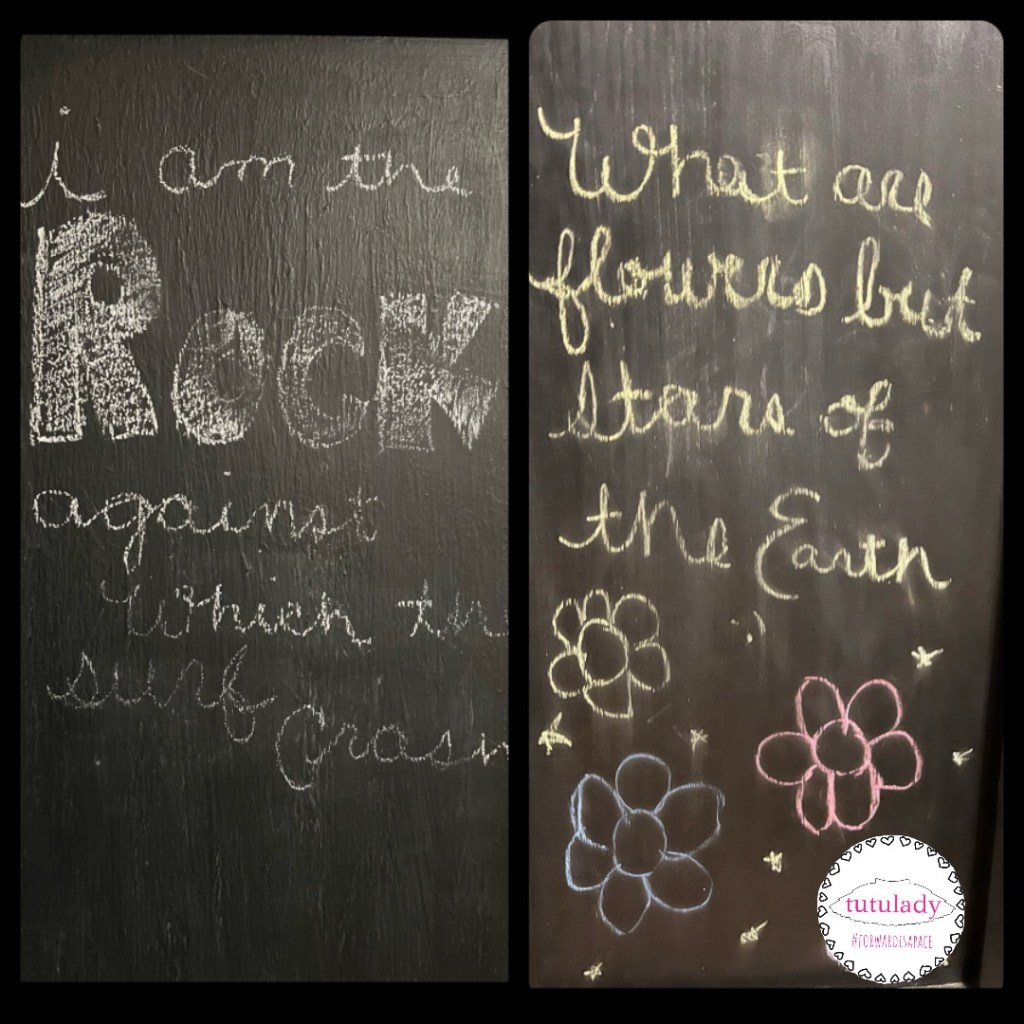 i am the
ROCK
against
Which th
surf
Crash
What are
flowers but
Stars of
the Earth
tutulady
#FORWARDISAPACE